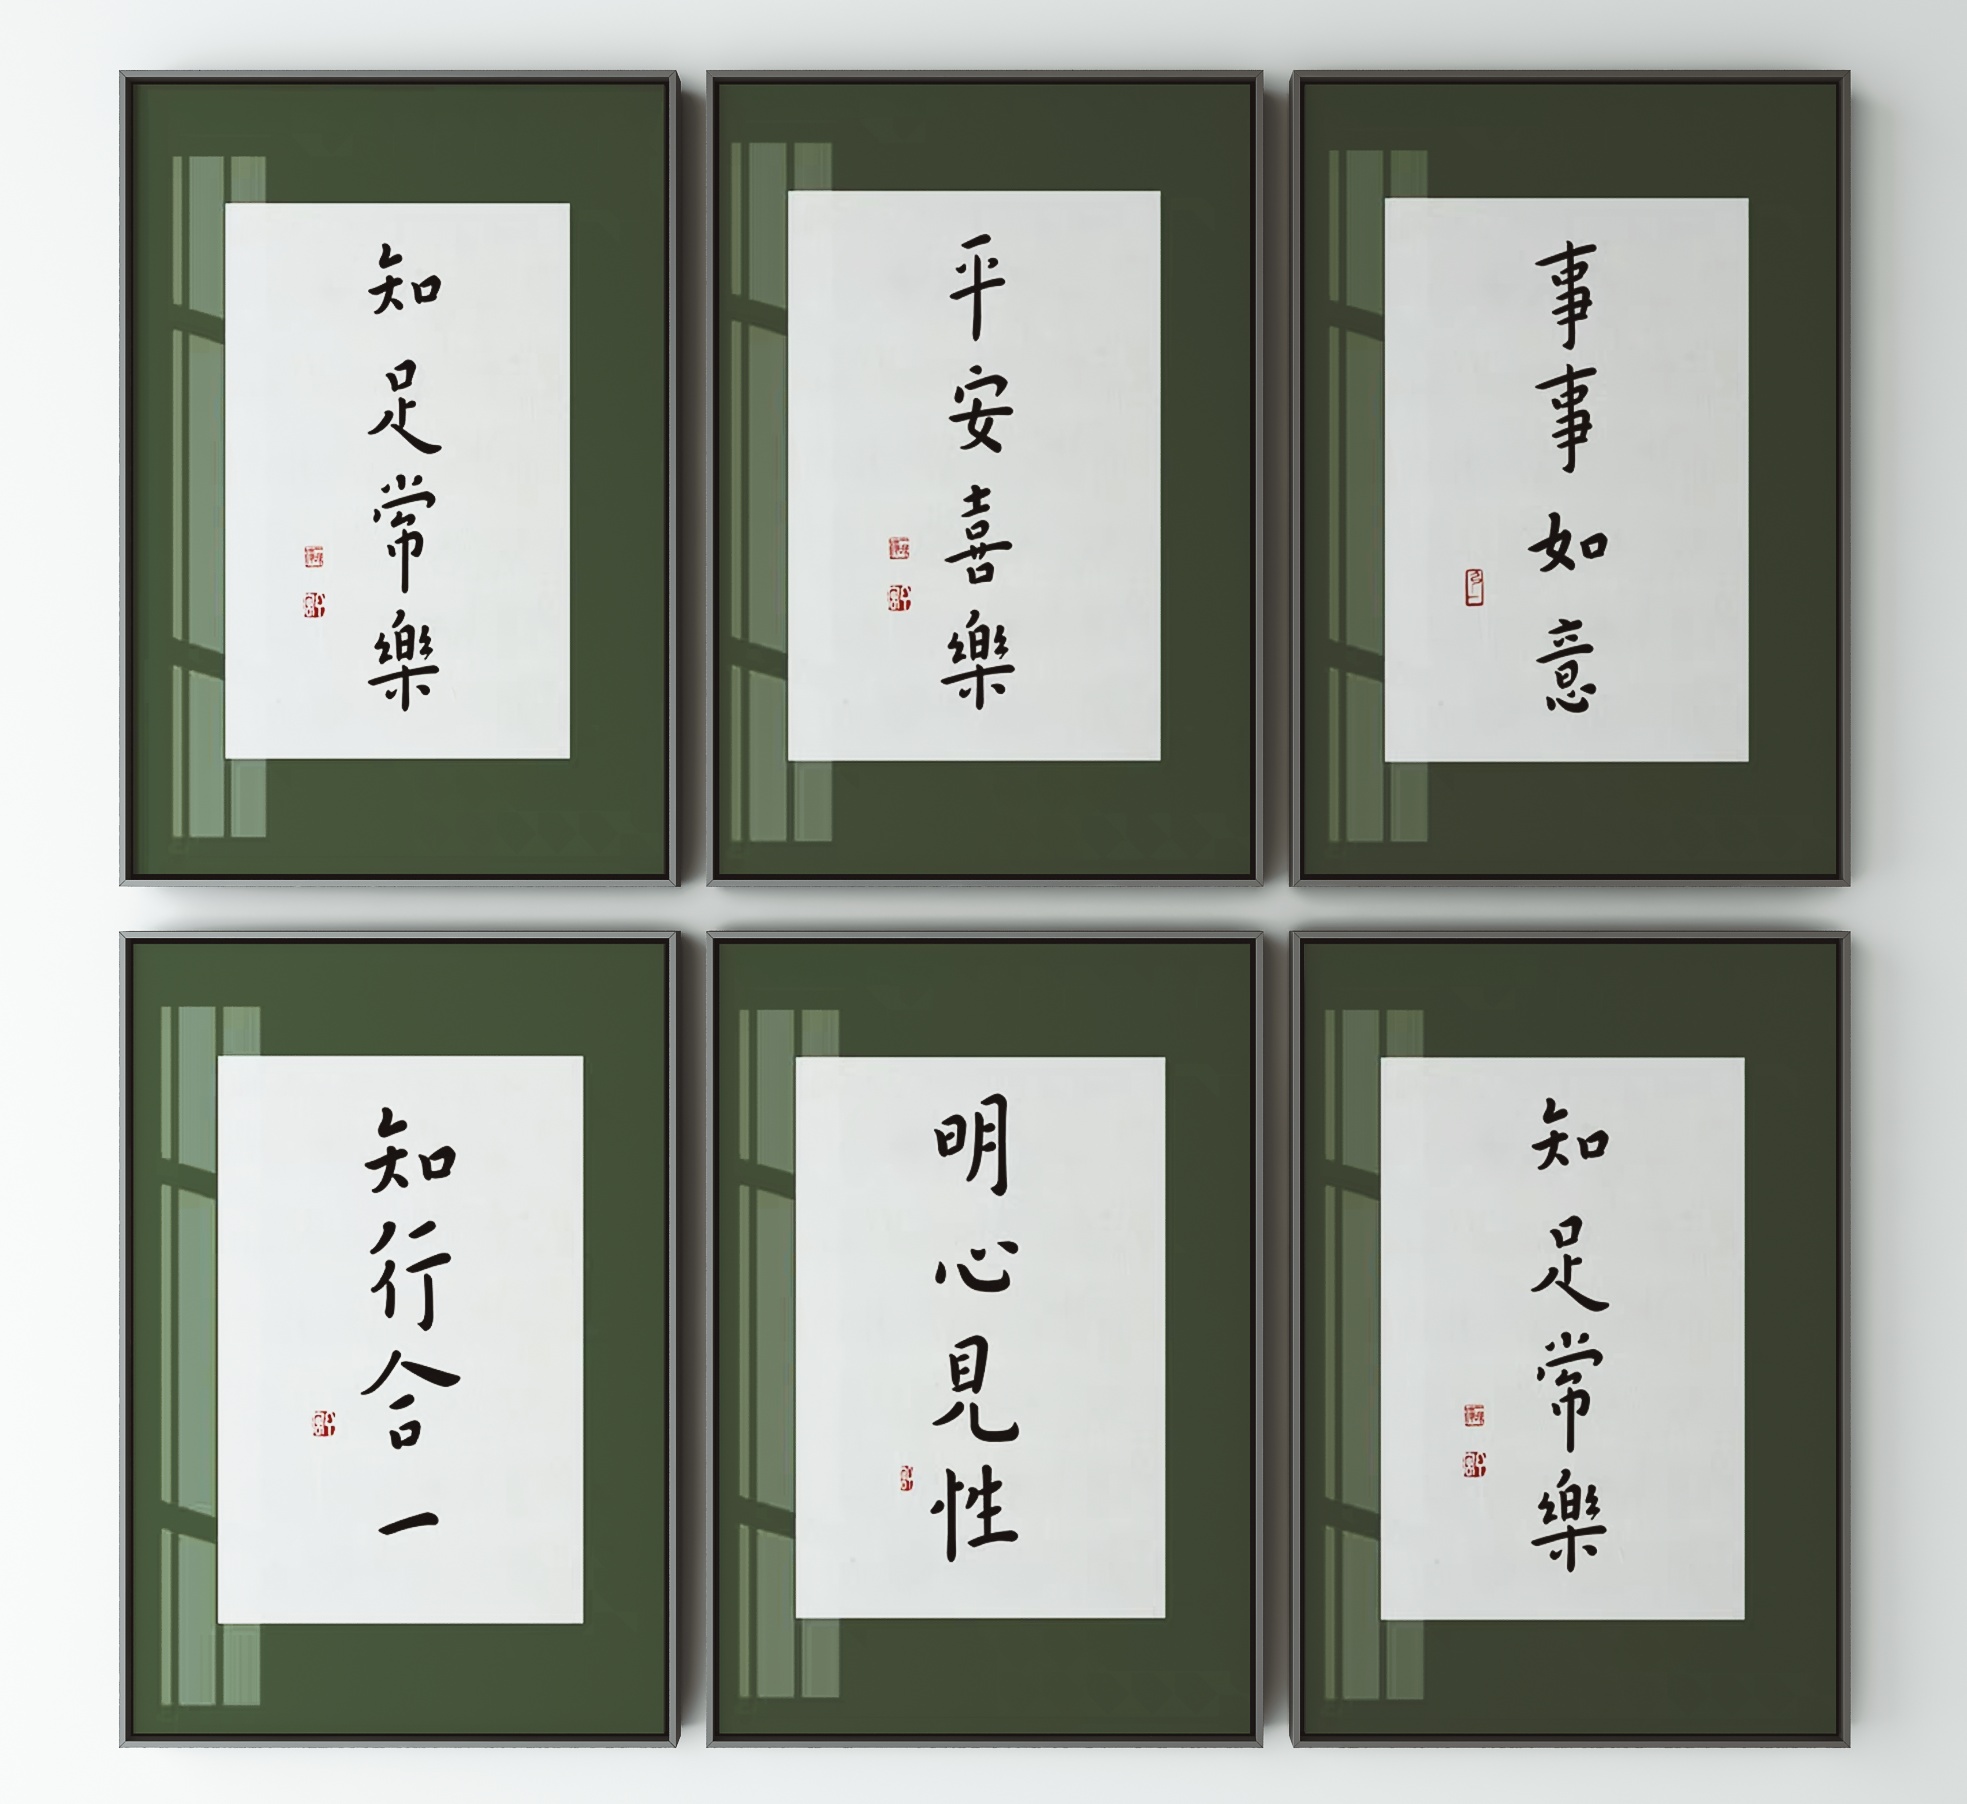 知足常樂
平安喜樂
事事如意
知行合一
明心見性
知足常樂